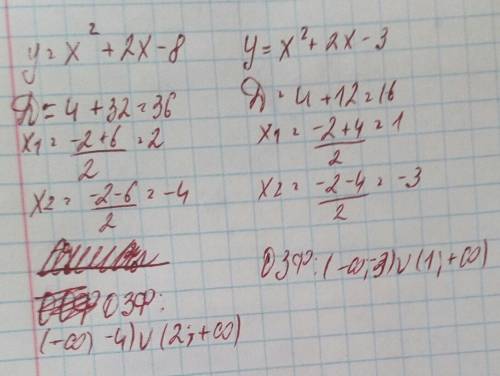 y = x² + 2x - 8
D = 4 + 32 = 36
x1 = (-2+6)/2 = 2
x2 = (-2-6)/2 = -4
ОЗФ:
(-∞, -4) ∪ (2; +∞)
y = x² + 2x - 3
D = 4 + 12 = 16
x1 = (-2+4)/2 = 1
x2 = (-2-4)/2 = -3
ОЗФ: (-∞; -3) ∪ (1; +∞)